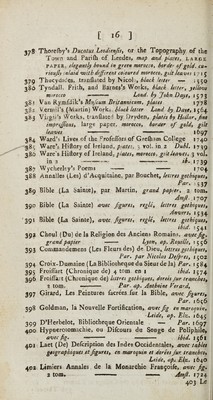 [ 16 ]
378 Thoresby's Ducatus Leodiensis, or the Topography of the
Town and Parish of Leedes, map and plates, LARGE
PAPER, elegantly bound in green morocco, border of gold, co-
vertly inlaid with different coloured morocco, gilt leaves 1715
379 Thucydides, translated by Nicol, black letter — 1550
380 Tyndall, Frith, and Barnes's Works, black letter, yellow
morocco — Lond. by John Daye, 1573
381 Van Rymsdik's Museum Britannicum, plates 1778
382 Vermil's (Martin) Works, black letter Lond. by Daye, 1564
383 Virgil's Works, translated by Dryden, plates by Hollar, fine
impressions, large paper, morocco, border of gold, gilt
leaves 1697
384 Ward's Lives of the Professors of Gresham College 1740
385 Ware's History of Ireland, plates, 2 vol. in 2 Dubl. 1739
386 Ware's History of Ireland, plates, morocco, gilt leaves, 3 vol.
in 2 ib. 1739
387 Wycherley's Poems — 1704
388 Annalles (Les) d'Acquitaine, par Bouchet, lettres gothiques,
Par. 1537
389 Bible (La Sainte), par Martin, grand papier, 2 tom.
Amst. 1707
390 Bible (La Sainte) avec figures, reglé, lettres gothiques,
Anvers, 1534
391 Bible (La Sainte), avec figures, reglé, lettres gothiques,
ibid. 1541
392 Cheul (Du) de la Religion des Anciens Romains, avec fig.
grand papier Lyon, ap. Rouille, 1556
393 Commandemens (Les Fleurs des) de Dieu, lettres gothiques,
Par. par Nicolas Desprez, 1502
394 Croix-Dumaine (La Bibliotheque du Sieur de la) Par. 1584
395 Froissart (Chronique de) 4 tom en 2 ibid. 1574
396 Froissart (Chronique de) lettres gothiques, dorés sur tranches,
2 tom. — Par. ap. Anthoine Verard,
397 Girard, Les Peintures sacrées sur la Bible, avec figures,
Par. 1656
398 Goldman, la Nouvelle Fortification, avec fig. en maroquin,
Leide, ap. Elz. 1645
399 D'Herbelot, Bibliotheque Orientale — Par. 1697
400 Hypnerotomachie, ou Discours du Songe de Poliphile,
avec fig. — ibid. 1561
401 Laet (De) Description des Indes Occidentales, avec tables
geographiques et figures, en maroquin et dorées sur tranches,
Leide, ap. Elz. 1640
402 Limiers Annales de la Monarchie Françoise, avec fig.
2 tom. — Amst. 1724
403 Le